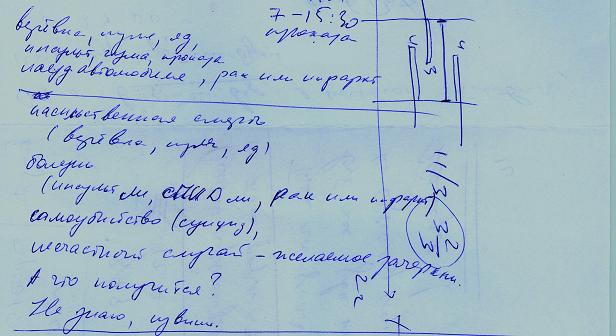 верёвка, пуля, яд,
инсульт, чума, проказа
наезд автомобиля, рак или инфаркт
7-15:30
проказа
насильственная смерть
(верёвка, пуля, яд)
болезни
(инсульт ли, СПИД ли, рак или инфаркт)
самоубийство (суицид),
несчастный случай – желаемое зачеркни.
А что получится?
Не знаю, извини.